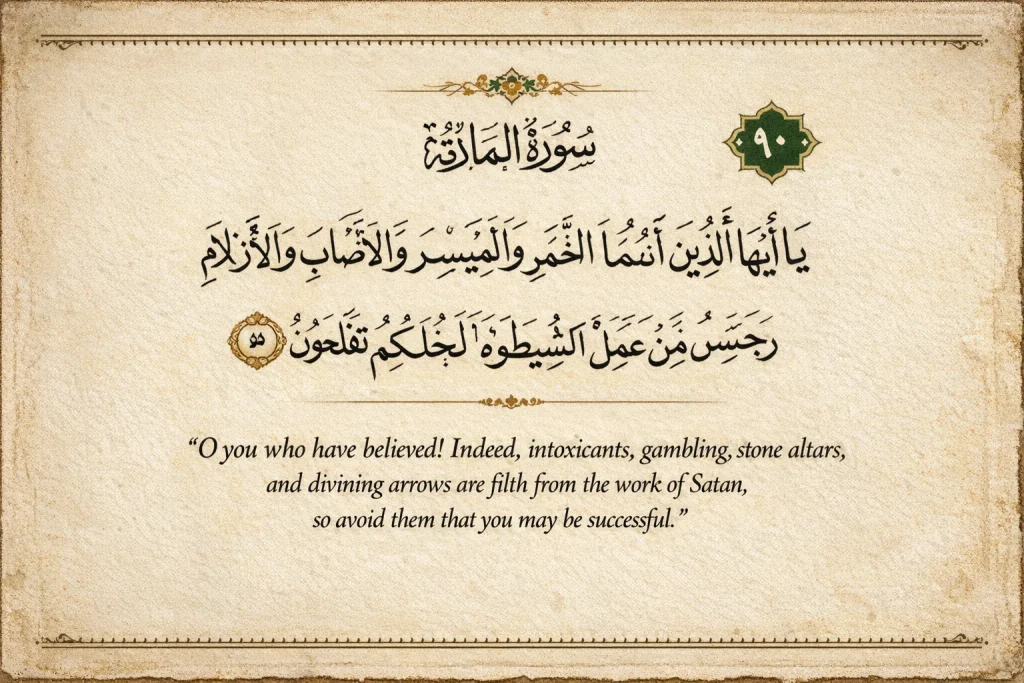 سُورَةُ المَارَتَة
٩٠
يَا أَيُّهَا أَلَّذِينَ أَنتُمَا الخَّمَرِ وَالَمِيَسِرَ وَالَأَصَابَ وَالأَزْلَامِ
رَجَسِسُ مِّنَ عَمَلْ الشِيطَوهَ لَخُلَكُمِ تفَلَحَونُ
“O you who have believed! Indeed, intoxicants, gambling, stone altars,
and divining arrows are filth from the work of Satan,
so avoid them that you may be successful.”